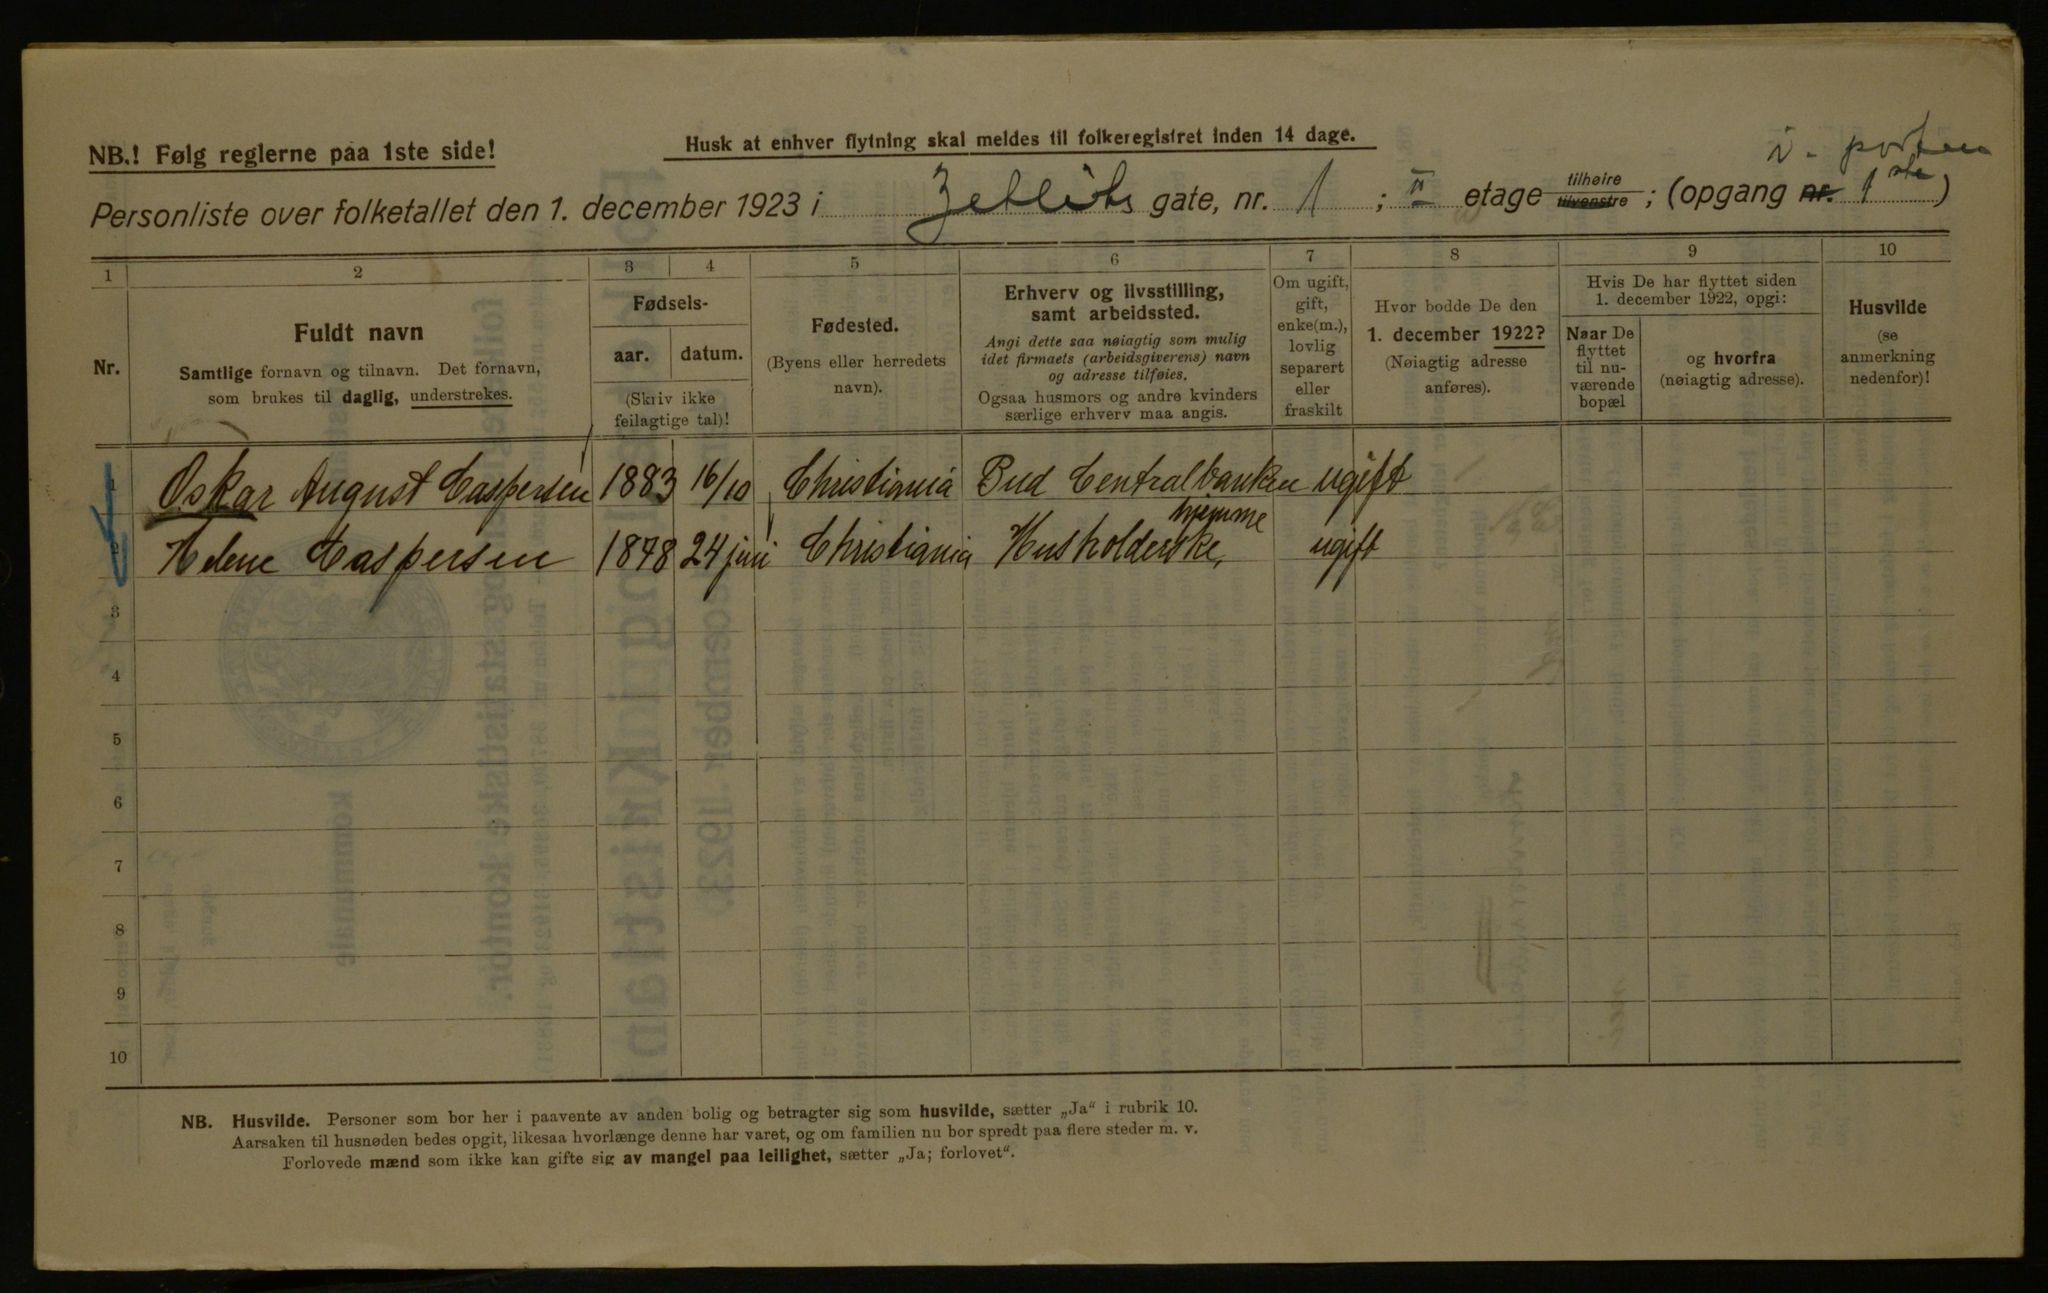 NB.! Følg reglerne paa 1ste side!
Husk at enhver flytning skal meldes til folkeregistret inden 14 dage.
Personliste over folketallet den 1. december 1923 i Zetlitz gate, nr. 1 ; II etage tilhøire tilvenstre ; (opgang nr. 1ste)
i. porten
1 2 3 4 5 6 7 8 9 10
Nr.
Fuldt navn
Samtlige fornavn og tilnavn. Det fornavn,
som brukes til daglig, understrekes.
Fødsels-
aar. datum.
(Skriv ikke
feilagtige tal)!
Fødested.
(Byens eller herredets
navn).
Erhverv og livsstilling,
samt arbeidssted.
Angi dette saa nøiagtig som mulig
idet firmaets (arbeidsgiverens) navn
og adresse tilføies.
Ogsaa husmors og andre kvinders
særlige erhverv maa angis.
Om ugift,
gift,
enke(m.),
lovlig
separert
eller
fraskilt
Hvor bodde De den
1. december 1922?
(Nøiagtig adresse
anføres).
Hvis De har flyttet siden
1. december 1922, opgi:
Naar De
flyttet
til nu-
værende
bopæl
og hvorfra
(nøiagtig adresse).
Husvilde
(se
anmerkning
nedenfor)!
1 Oskar August Caspersen 1883 16/10 Christiania Bud Centralbanken ugift
hjemme
2 Helene Caspersen 1878 24 juni Christiania Husholderske, ugift
3
4
5
6
7
8
9
10
NB. Husvilde. Personer som bor her i paavente av anden bolig og betragter sig som husvilde, sætter „Ja“ i rubrik 10.
Aarsaken til husnøden bedes opgit, likesaa hvorlænge denne har varet, og om familien nu bor spredt paa flere steder m. v.
Forlovede mænd som ikke kan gifte sig av mangel paa leilighet, sætter „Ja; forlovet“.